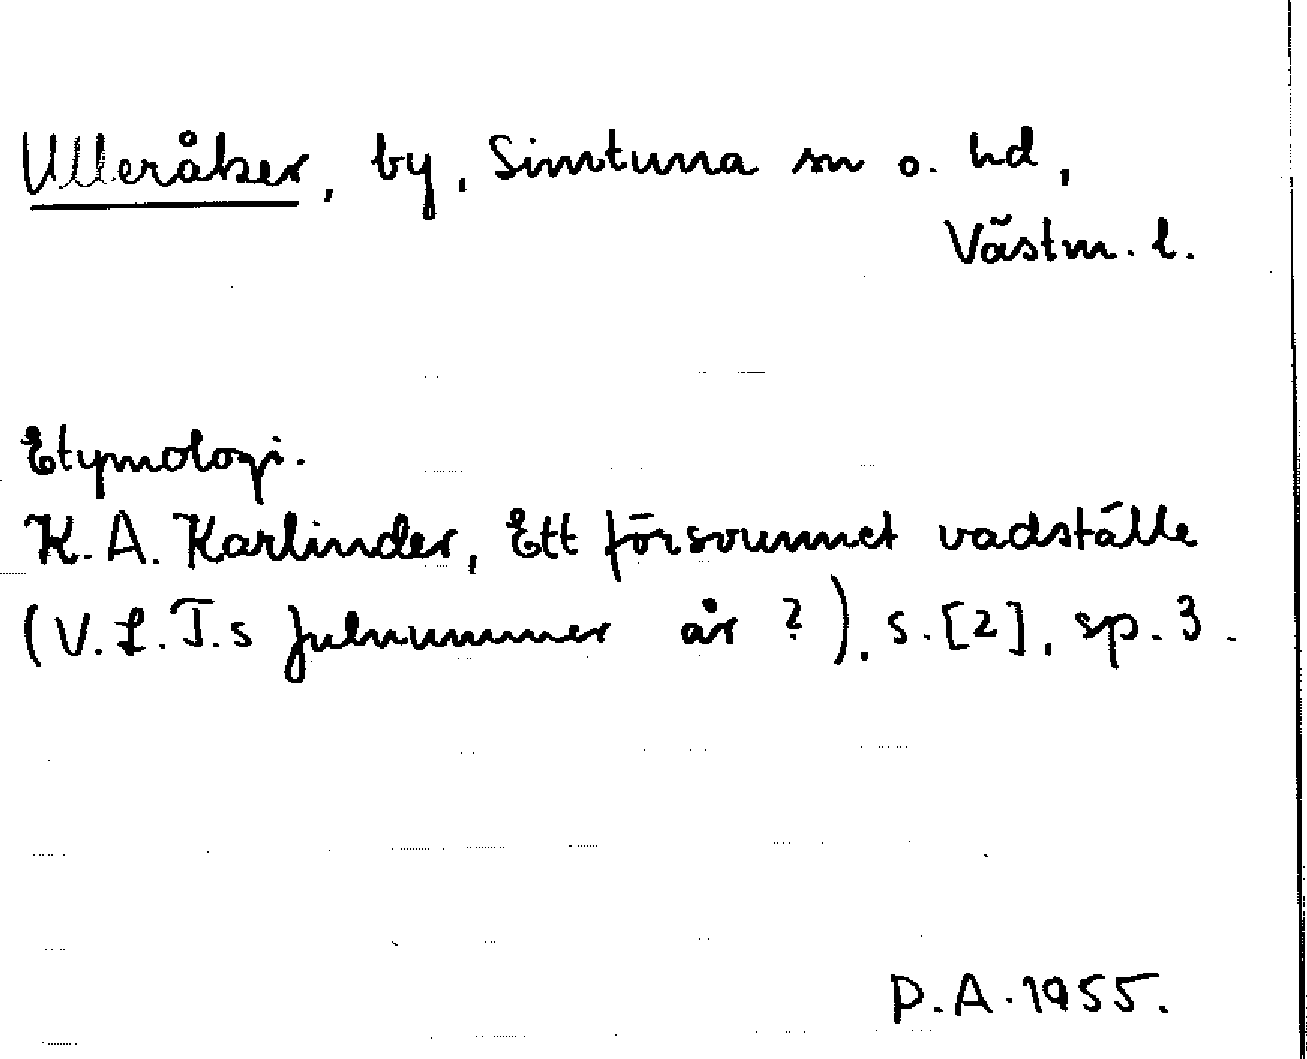 Ulleråker, by, Simtuna sn o. hd,
Västm. l.
Etymologi.
K. A. Karlinder, Ett försvunnet vadställe
(V. L. T.s Julnummer år ?), s. [2], sp. 3.
P. A. 1955.